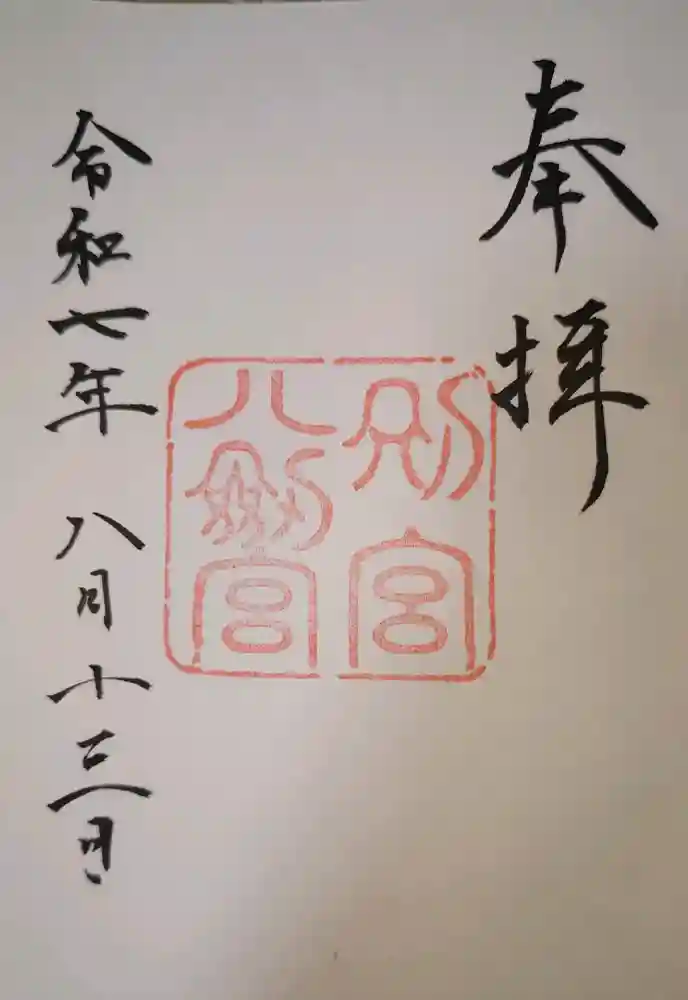 奉拝
別宮
八剱宮
令和七年 八月十三日